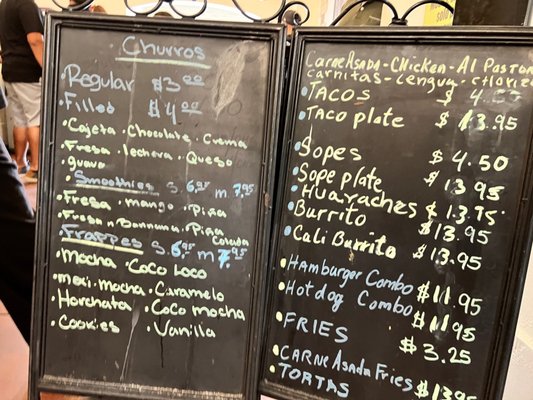 Churros
Regular $3.00
Filled $4.00
Cajeta · Chocolate · Crema
Fresa · lechera · Queso
guava
Smoothies S. 6.95 m 7.95
Fresa · mango · Piña
Fresa n Bannana · Piña Colada
Frappes S. 6.95 m 7.95
Mocha · Coco Loco
Mexi-mocha · Caramelo
Horchata · Coco mocha
Cookies · Vanilla
CarneAsada - Chicken - Al Pastor
Carnitas - Lengua -
Tacos $ 4.
Taco plate $13.95
Sopes $4.50
Sope plate $13.95
Huaraches $13.95
Burrito $13.95
Cali Burrito $13.95
Hamburger Combo $11.95
Hot dog Combo $11.95
FRIES $3.25
CARNE Asada Fries $13.95
TORTAS